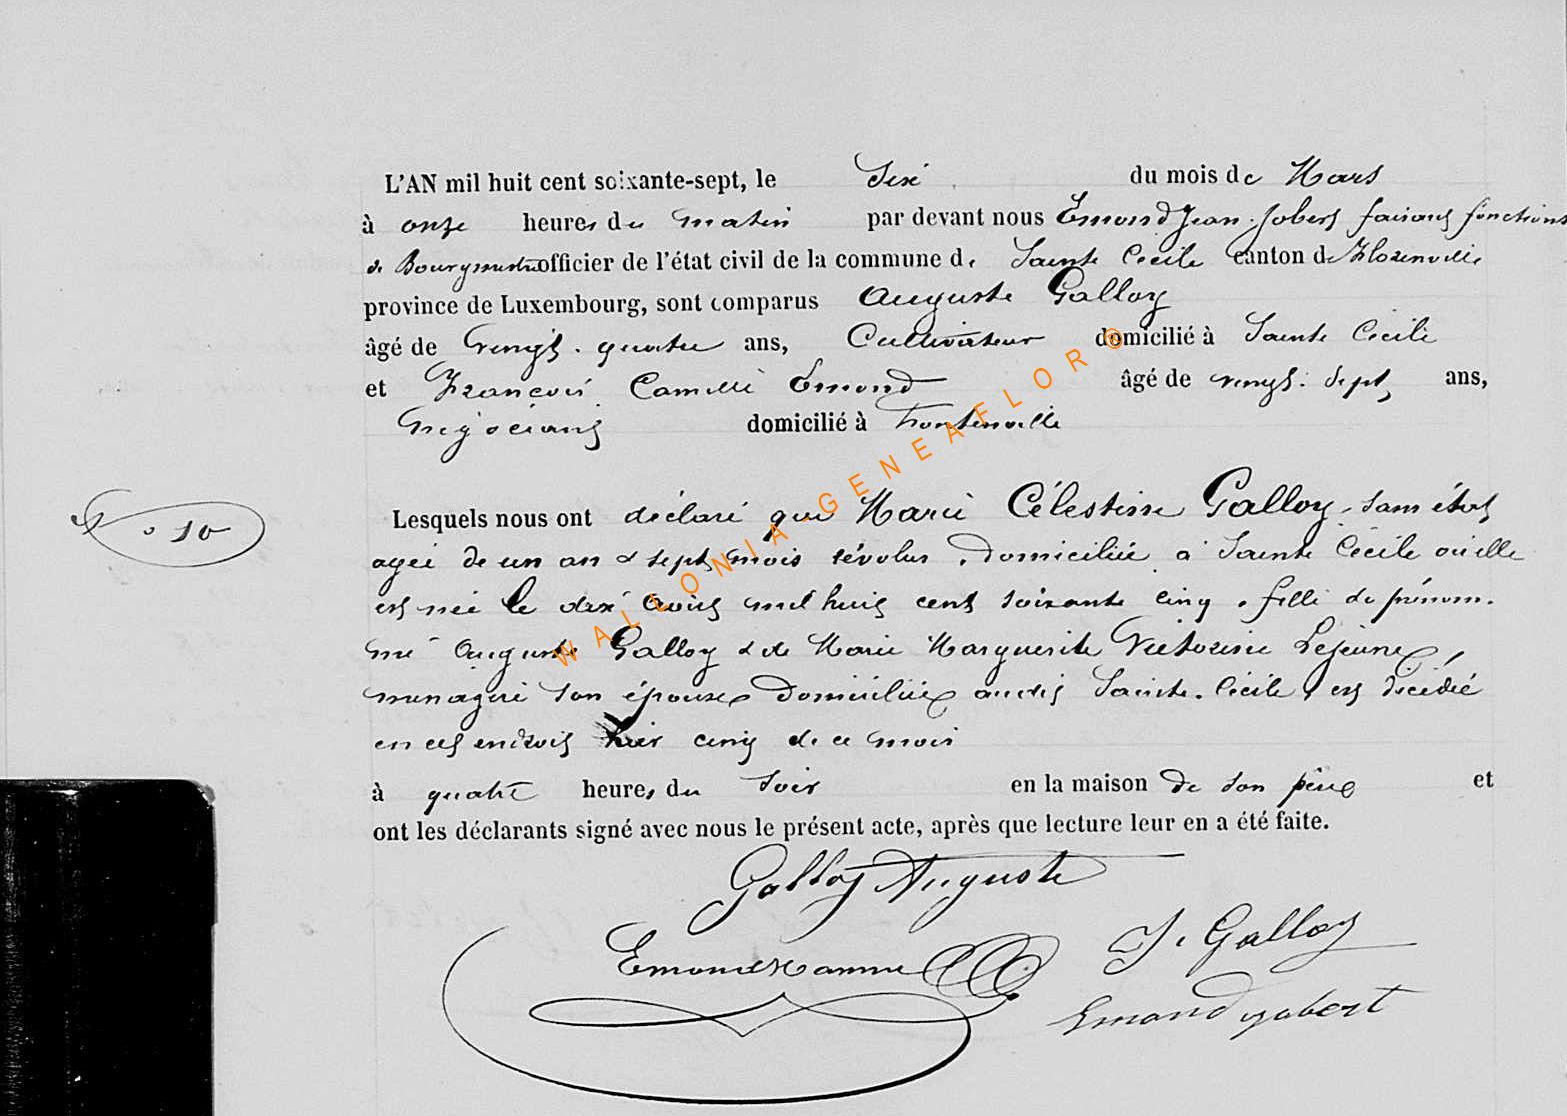 L'AN mil huit cent soixante-sept, le Six du mois de Mars
à onze heures du matin par devant nous Emond Jean-Jobert faisant fonctions
de Bourgmestre officier de l'état civil de la commune de Sainte Cécile canton de Florenville
province de Luxembourg, sont comparus Auguste Galloy
âgé de vingt-quatre ans, Cultivateur domicilié à Sainte Cécile
et François Camille Emond âgé de vingt-sept ans,
négociant domicilié à Fontenoille
N° 10
Lesquels nous ont déclaré que Marie Célestine Galloy, sans état
agée de un an & sept mois révolus, domiciliée à Sainte Cécile où elle
est née le dix Août mil huit cent soixante cinq, fille du prénom-
mé Auguste Galloy & de Marie Marguerite Victorine Lejeune,
menagère son épouse domiciliée audit Sainte-Cécile, est décédée
en cet endroit hier cinq de ce mois
à quatre heures du soir en la maison de son père et
ont les déclarants signé avec nous le présent acte, après que lecture leur en a été faite.
Galloy Auguste
J. Galloy
Emond Jobert
WALLONIA-GENEAFLOR®